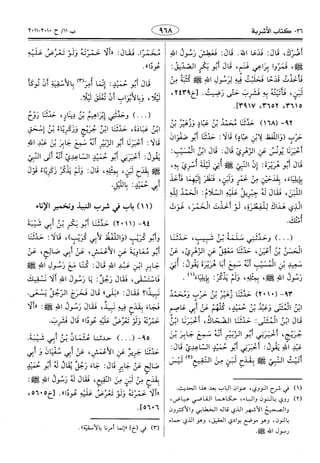 ٣٦- كتاب الأشربة
٩٦٨
ب ١١/ح ٢٠١٠-٢٠١١
أَضُرَّكَ. قَالَ: فَدَعَا اللهَ. قَالَ: فَعَطِشَ رَسُولُ اللهِ
ﷺ، فَمَرُّوا بِرَاعِي غَنَمٍ، قَالَ أَبُو بَكْرٍ الصِّدِّيقُ:
فَأَخَذْتُ قَدَحًا فَحَلَبْتُ فِيهِ لِرَسُولِ اللهِ ﷺ كُثْبَةً مِنْ
لَبَنٍ، فَأَتَيْتُهُ بِهِ فَشَرِبَ حَتَّى رَضِيتُ. [خ٢٤٣٩،
٣٦١٥، ٣٦٥٢، ٣٩١٧].
٩٢- (١٦٨) حَدَّثَنَا مُحَمَّدُ بْنُ عَبَّادٍ وَزُهَيْرُ بْنُ
حَرْبٍ (وَاللَّفْظُ لِابْنِ عَبَّادٍ) قَالَا: حَدَّثَنَا أَبُو صَفْوَانَ:
أَخْبَرَنَا يُونُسُ عَنِ الزُّهْرِيِّ قَالَ: قَالَ ابْنُ الْمُسَيَّبِ:
قَالَ أَبُو هُرَيْرَةَ: إِنَّ النَّبِيَّ ﷺ أُتِيَ لَيْلَةَ أُسْرِيَ بِهِ،
بِإِيلِيَاءَ، بِقَدَحَيْنِ مِنْ خَمْرٍ وَلَبَنٍ، فَنَظَرَ إِلَيْهِمَا فَأَخَذَ
اللَّبَنَ، فَقَالَ لَهُ جِبْرِيلُ عَلَيْهِ السَّلَامُ: الْحَمْدُ لِلهِ
الَّذِي هَدَاكَ لِلْفِطْرَةِ، لَوْ أَخَذْتَ الْخَمْرَ، غَوَتْ
أُمَّتُكَ.
(...) وحَدَّثَنِي سَلَمَةُ بْنُ شَبِيبٍ، حَدَّثَنَا
الْحَسَنُ بْنُ أَعْيَنَ، حَدَّثَنَا مَعْقِلٌ عَنِ الزُّهْرِيِّ، عَنْ
سَعِيدِ بْنِ الْمُسَيَّبِ أَنَّهُ سَمِعَ أَبَا هُرَيْرَةَ يَقُولُ: أُتِيَ
رَسُولُ اللهِ ﷺ، بِمِثْلِهِ، وَلَمْ يَذْكُرْ: بِإِيلِيَاءَ(١).
٩٣- (٢٠١٠) حَدَّثَنَا زُهَيْرُ بْنُ حَرْبٍ وَمُحَمَّدُ
ابْنُ الْمُثَنَّى وَعَبْدُ بْنُ حُمَيْدٍ، كُلُّهُمْ عَنْ أَبِي عَاصِمٍ
قَالَ ابْنُ الْمُثَنَّى: حَدَّثَنَا الضَّحَّاكُ، أَخْبَرَنَا ابْنُ
جُرَيْجٍ، أَخْبَرَنِي أَبُو الزُّبَيْرِ أَنَّهُ سَمِعَ جَابِرَ بْنَ
عَبْدِ اللهِ يَقُولُ: أَخْبَرَنِي أَبُو حُمَيْدٍ السَّاعِدِيُّ قَالَ:
أَتَيْتُ النَّبِيَّ ﷺ بِقَدَحِ لَبَنٍ مِنَ النَّقِيعِ(٢) لَيْسَ
مُخَمَّرًا. فَقَالَ: «أَلَا خَمَّرْتَهُ وَلَوْ تَعْرُضُ عَلَيْهِ
عُودًا».
قَالَ أَبُو حُمَيْدٍ: إِنَّمَا أُمِرَ(٣) بِالْأَسْقِيَةِ أَنْ تُوكَأَ
لَيْلًا، وَبِالْأَبْوَابِ أَنْ تُغْلَقَ لَيْلًا.
(...) وحَدَّثَنِي إِبْرَاهِيمُ بْنُ دِينَارٍ، حَدَّثَنَا رَوْحُ
ابْنُ عُبَادَةَ، حَدَّثَنَا ابْنُ جُرَيْجٍ وَزَكَرِيَّاءُ بْنُ إِسْحَقَ
قَالَا: أَخْبَرَنَا أَبُو الزُّبَيْرِ أَنَّهُ سَمِعَ جَابِرَ بْنَ عَبْدِ اللهِ
يَقُولُ: أَخْبَرَنِي أَبُو حُمَيْدٍ السَّاعِدِيُّ أَنَّهُ أَتَى النَّبِيَّ
ﷺ بِقَدَحِ لَبَنٍ، بِمِثْلِهِ. قَالَ: وَلَمْ يَذْكُرْ زَكَرِيَّاءُ قَوْلَ
أَبِي حُمَيْدٍ: بِاللَّيْلِ.
(١١) باب في شرب النبيذ وتخمير الإناء
٩٤- (٢٠١١) حَدَّثَنَا أَبُو بَكْرِ بْنُ أَبِي شَيْبَةَ
وَأَبُو كُرَيْبٍ (وَاللَّفْظُ لِأَبِي كُرَيْبٍ)، قَالَا: حَدَّثَنَا
أَبُو مُعَاوِيَةَ عَنِ الْأَعْمَشِ، عَنْ أَبِي صَالِحٍ، عَنْ
جَابِرِ ابْنِ عَبْدِ اللهِ قَالَ: كُنَّا مَعَ رَسُولِ اللهِ ﷺ
فَاسْتَسْقَى، فَقَالَ رَجُلٌ: يَا رَسُولَ اللهِ أَلَا نَسْقِيكَ
نَبِيذًا؟ فَقَالَ: «بَلَى» قَالَ فَخَرَجَ الرَّجُلُ يَسْعَى،
فَجَاءَ بِقَدَحٍ فِيهِ نَبِيذٌ، فَقَالَ رَسُولُ اللهِ ﷺ: «أَلَا
خَمَّرْتَهُ وَلَوْ تَعْرُضُ عَلَيْهِ عُودًا!» قَالَ: فَشَرِبَ.
٩٥- (...) حدثنا عُثْمَانُ بْنُ أَبِي شَيْبَةَ.
حَدَّثَنَا جَرِيرٌ عَنِ الْأَعْمَشِ، عَنْ أَبِي سُفْيَانَ وَ أَبِي
صَالِحٍ عَنْ جَابِرٍ قَالَ: جَاءَ رَجُلٌ يُقَالُ لَهُ أَبُو حُمَيْدٍ
بِقَدَحٍ مِنْ لَبَنٍ مِنَ النَّقِيعِ، فَقَالَ لَهُ رَسُولُ اللهِ ﷺ:
«أَلَا خَمَّرْتَهُ وَلَوْ تَعْرُضُ عَلَيْهِ عُودًا». [خ٥٦٠٥،
٥٦٠٦].
(١) في شرح النووي، عنوان الباب بعد هذا الحديث.
(٢) روي بالنون والباء، حكاهما القاضي عياض،
والصحيح الأشهر الذي قاله الخطابي والأكثرون
بالنون، وهو موضع بوادي العقيق، وهو الذي حماه
رسول الله ﷺ.
(٣) في (خ) «إنما أمرنا بالأسقية».